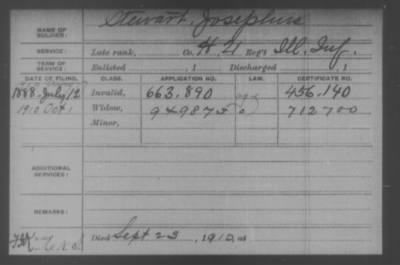 NAME OF SOLDIER: Stewart, Josephus
SERVICE: Late rank, Co. H, 41 Reg't Ill. Inf.
TERM OF SERVICE: Enlisted , 1 Discharged , 1
DATE OF FILING. CLASS. APPLICATION NO. LAW. CERTIFICATE NO.
1888 July 12 Invalid, 663.890 456.140
1910 Oct 1 Widow, 949875 712700
Minor,
ADDITIONAL SERVICES:
REMARKS:
Died Sept 23, 1910, at